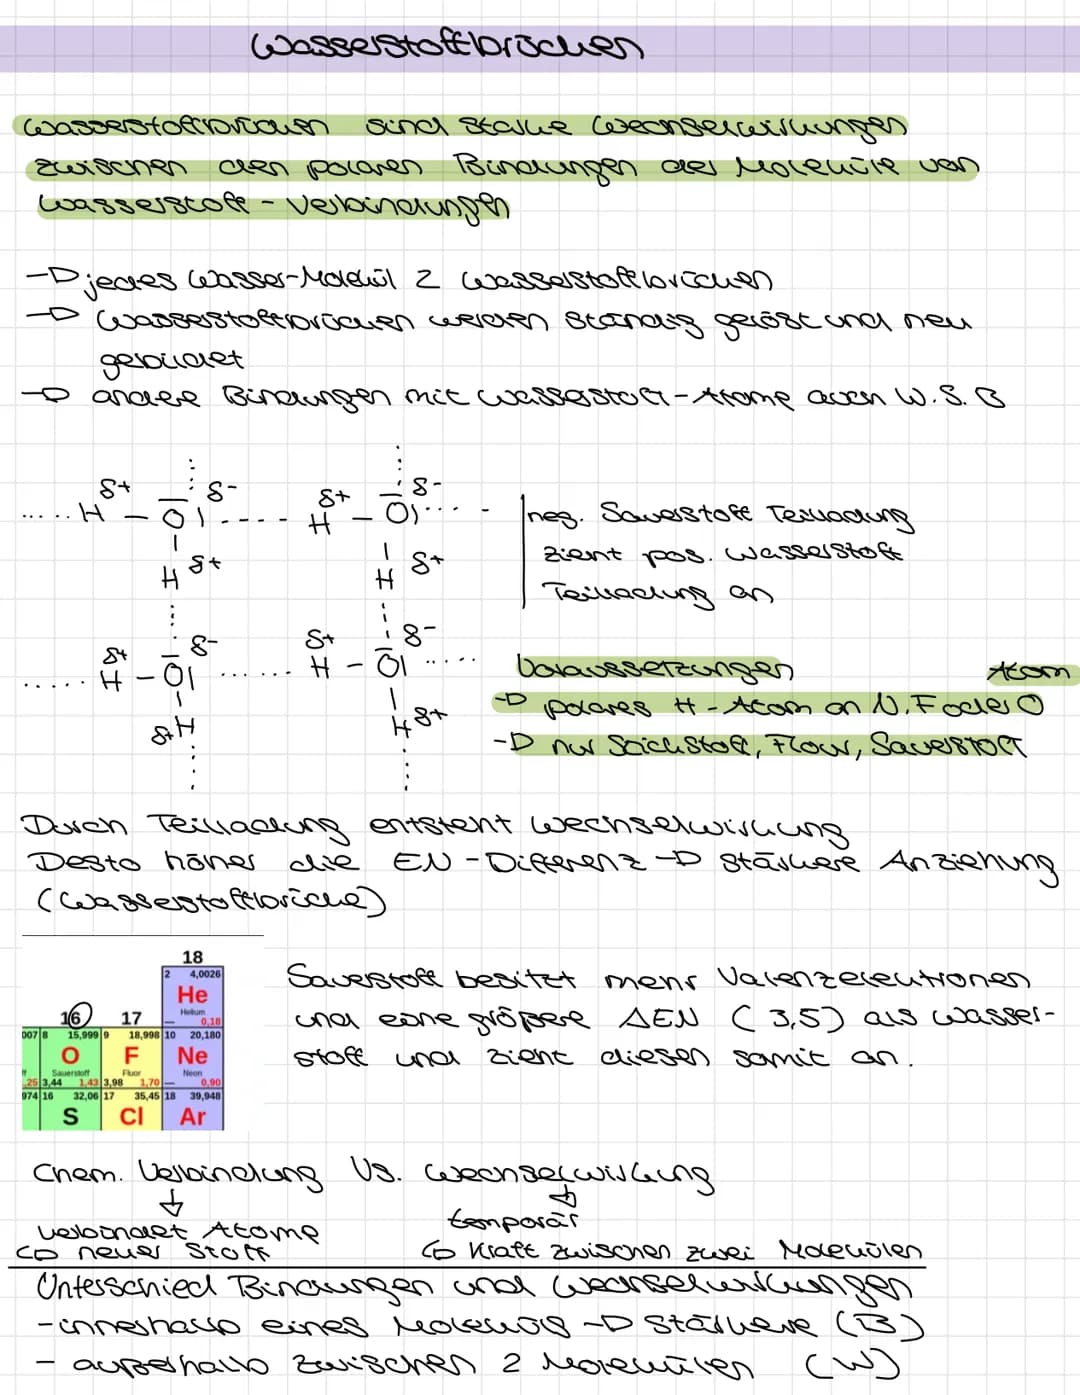 Wasserstoffbrücken
Wasserstoffbrücken sind starke Wechselwirkungen
zwischen den polaren Bindungen der Moleküle von
Wasserstoff - Verbindungen
-▷ jedes Wasser-Molekül 2 Wasserstoffbrücken
-▷ Wasserstoffbrücken werden ständig gelöst und neu
gebildet
-▷ andere Bindungen mit Wasserstoff-Atome auch W.S.B
δ+ δ- δ+ δ-
H - O H - O
H δ+ H δ+
neg. Sauerstoff Teilladung
zieht pos. Wasserstoff
Teilladung an
δ+ δ- δ+ δ-
H - O H - O
δ+ H H δ+
Voraussetzungen Atom
-▷ polares H-Atom an N, F oder O
-▷ nur Stickstoff, Fluor, Sauerstoff
Durch Teilladung entsteht Wechselwirkung
Desto höher die EN-Differenz -▷ stärkere Anziehung
(Wasserstoffbrücke)
18
2 4,0026
He
Helium
0,18
16 17
007 8 15,999 9 18,998 10 20,180
O F Ne
Sauerstoff Fluor Neon
,25 3,44 1,43 3,98 1,70 — 0,90
974 16 32,06 17 35,45 18 39,948
S Cl Ar
Sauerstoff besitzt mehr Valenzelektronen
und eine größere ΔEN (3,5) als Wasser-
stoff und zieht diesen somit an.
Chem. Verbindung Vs. Wechselwirkung
verbindet Atome temporär
neuer Stoff Kraft zwischen zwei Molekülen
Unterschied Bindungen und Wechselwirkungen
- innerhalb eines Moleküls -▷ stärkere (B)
- außerhalb zwischen 2 Molekülen (W)